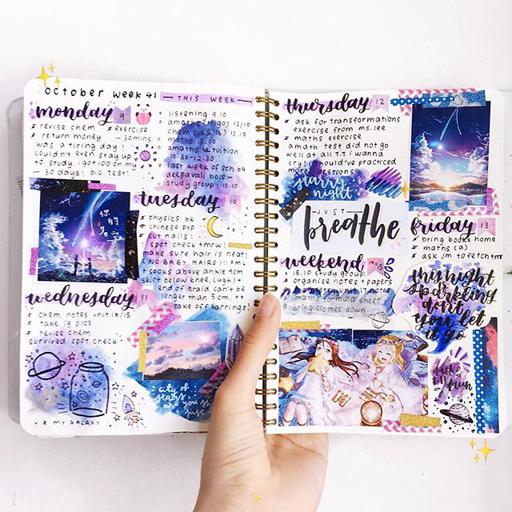 OCTOBER WEEK 41
monday 9
* revise chem
* exercise
* return money
was a tiring day!
couldn't even stay up
to study
30 days! bio test!
THIS WEEK
listening 9.10
chem
amaths tuition
10.30-12.30
last week of sch
deepavali hols
study group 15.10
tuesday 10
* physics bk
* chinese pvp
* cut nails!
spot check tmrw!
make sure hair is neat!
(NO BABY HAIRS!!)
socks above ankle
skirt below knee (ugh)
end of braid cant be
longer than 5cm.
take off earrings!
你的名
wednesday 11
* chem notes unit
* take pics
* revise chem
survived spot check!
UR MY GALAXY
city of
stars
are you
just
thursday 12
* ask for transformations
exercise from ms.lee
* maths exercise
amath test did not go
well at all T.T i wanna
cry should've practiced
more
starry
night
JUST
breathe
friday 13
* bring books home
maths (a)
* ask jm to fetch
weekend
* 15.10 study group!
* organise notes + papers
* bring clothes down
this night
sparkling
don't
you let
it go
make
fun